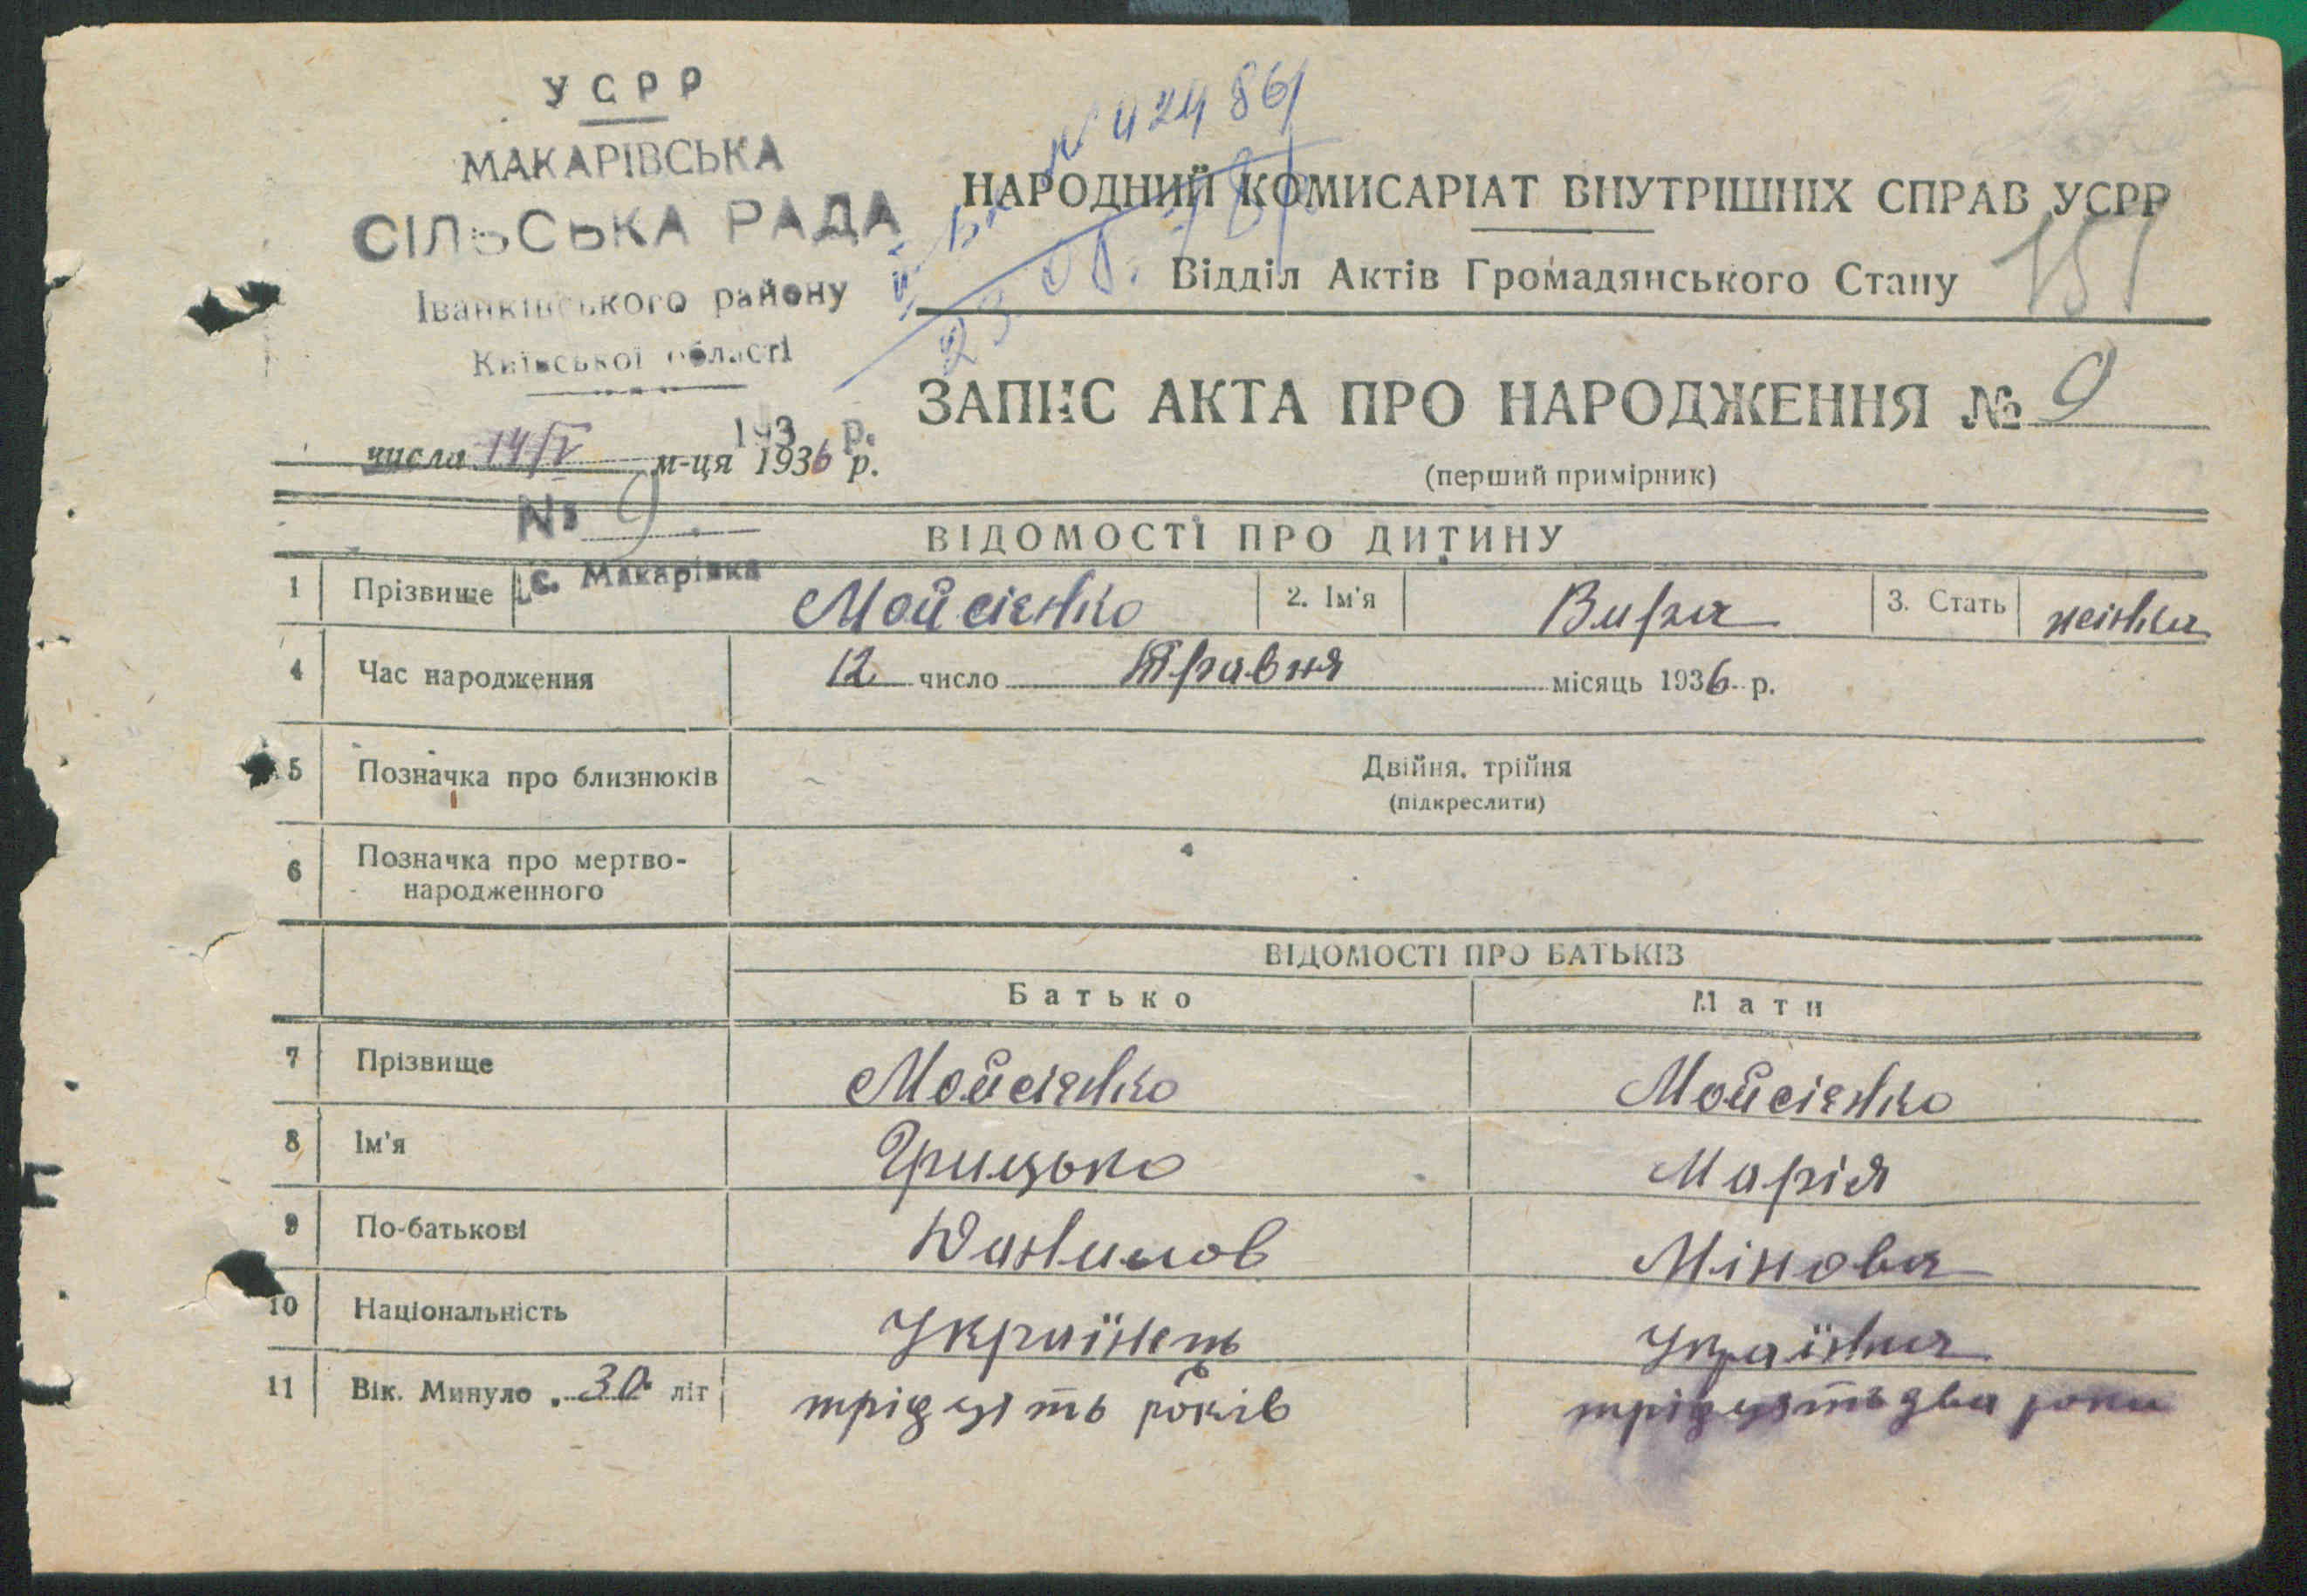 УСРР
МАКАРІВСЬКА
СІЛЬСЬКА РАДА
Іванківського району
Київської області
193 р.
числа 14/V м-ця 1936 р.
№ 9
с. Макарівка
НАРОДНИЙ КОМИСАРІАТ ВНУТРІШНІХ СПРАВ УСРР
151
Відділ Актів Громадянського Стану
ЗАПИС АКТА ПРО НАРОДЖЕННЯ № 9
(перший примірник)
ВІДОМОСТІ ПРО ДИТИНУ
1 Прізвище Мойсієнко 2. Ім'я Вира 3. Стать жінка
4 Час народження 12 число Травня місяць 1936 р.
5 Позначка про близнюків Двійня, трійня
(підкреслити)
6 Позначка про мертво-
народженного
ВІДОМОСТІ ПРО БАТЬКІВ
Батько Мати
7 Прізвище Мойсієнко Мойсієнко
8 Ім'я Грицько Марія
9 По-батькові Данилов Мінова
10 Національність Українець Українка
11 Вік. Минуло 30 літ трідцять років трідцять два роки